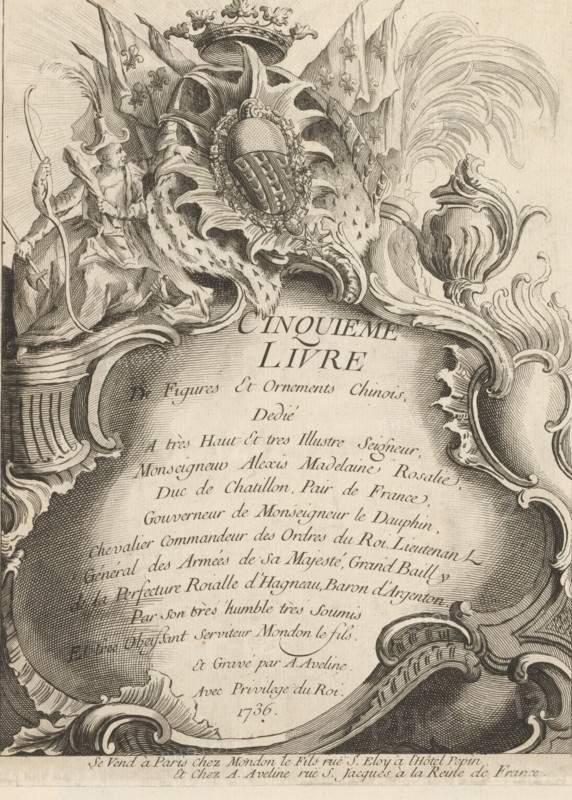 CINQUIEME
LIVRE
De Figures Et Ornements Chinois,
Dedié
A très Haut Et tres Illustre Seigneur,
Monseigneur Alexis Madelaine Rosalie,
Duc de Chatillon, Pair de France,
Gouverneur de Monseigneur le Dauphin,
Chevalier Commandeur des Ordres du Roi, Lieutenant
Général des Armées de Sa Majesté, Grand Bailly
de la Perfecture Roialle d'Hagneau, Baron d'Argenton
Par Son très humble très Soumis
Et très Obeissant Serviteur Mondon le fils.
Et Gravé par A. Aveline.
Avec Privilege du Roi.
1736.
Se Vend à Paris chez Mondon le Fils rue S. Eloy à l'Hôtel Pepin
Et Chez A. Aveline rue S. Jacques à la Reine de France